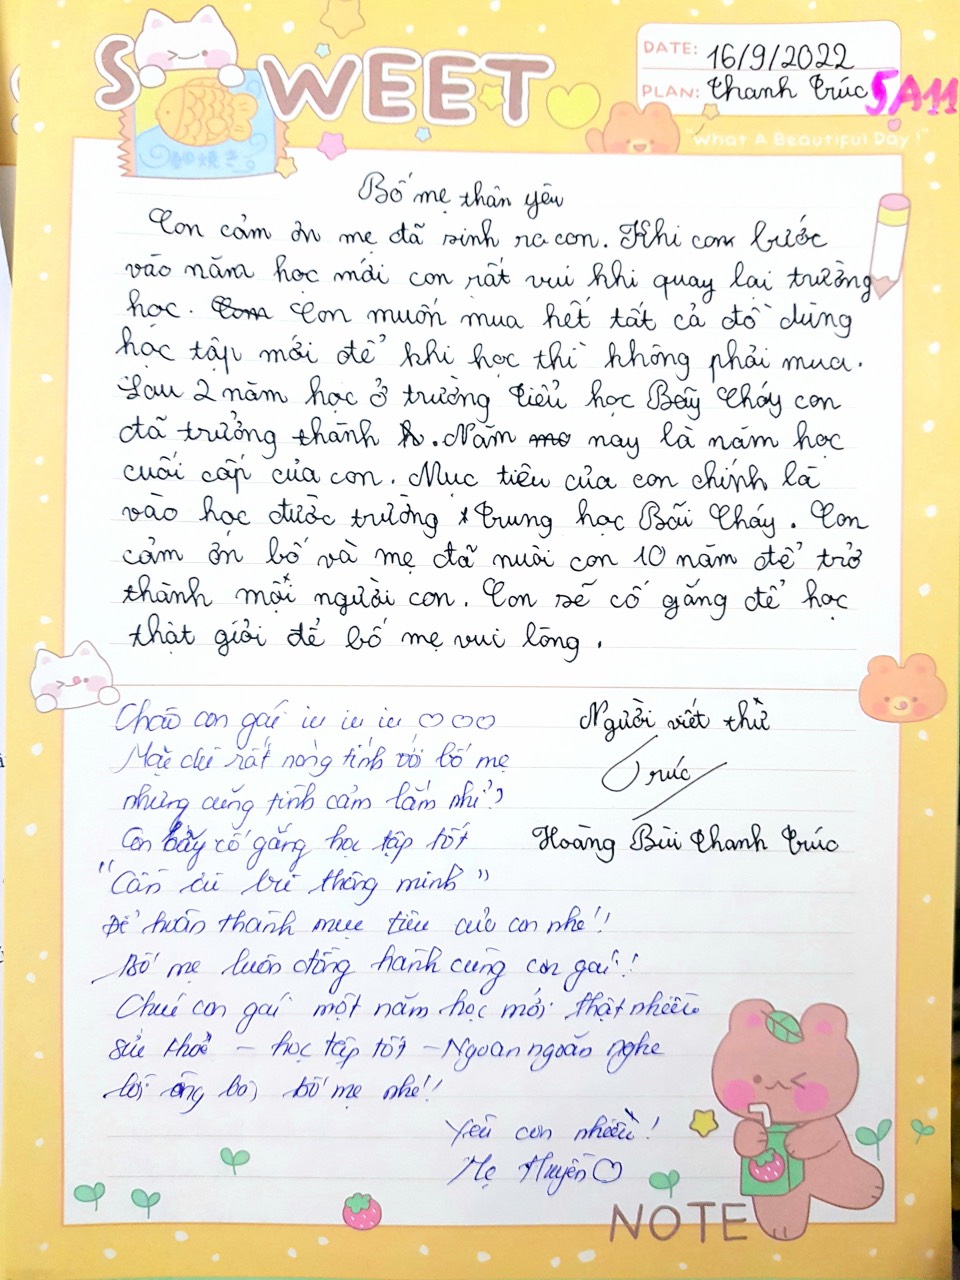 SWEET
DATE: 16/9/2022
PLAN: Thanh Trúc 5A11
"What A Beautiful Day!"
Bố mẹ thân yêu
Con cảm ơn mẹ đã sinh ra con. Khi con bước
vào năm học mới con rất vui khi quay lại trường
học. Con muốn mua hết tất cả đồ dùng
học tập mới để khi học thì không phải mua.
Sau 2 năm học ở trường Tiểu học Bãy Cháy con
đã trưởng thành h. Năm nay là năm học
cuối cấp của con. Mục tiêu của con chính là
vào học được trường Trung học Bãi Cháy. Con
cảm ơn bố và mẹ đã nuôi con 10 năm để trở
thành một người con. Con sẽ cố gắng để học
thật giỏi để bố mẹ vui lòng.
Người viết thư
Trúc
Hoàng Bùi Thanh Trúc
Chào con gái iu iu iu ♡♡♡
Mặc dù rất nóng tính với bố mẹ
nhưng cũng tình cảm lắm nhỉ??
Con hãy cố gắng học tập tốt
"Cần cù bù thông minh"
Để hoàn thành mục tiêu của con nhé!!
Bố mẹ luôn đồng hành cùng con gái!!
Chúc con gái một năm học mới thật nhiều
sức khoẻ - học tập tốt - Ngoan ngoãn nghe
lời ông bà, bố mẹ nhé!!
Yêu con nhiều!
Mẹ Huyền ♡
NOTE